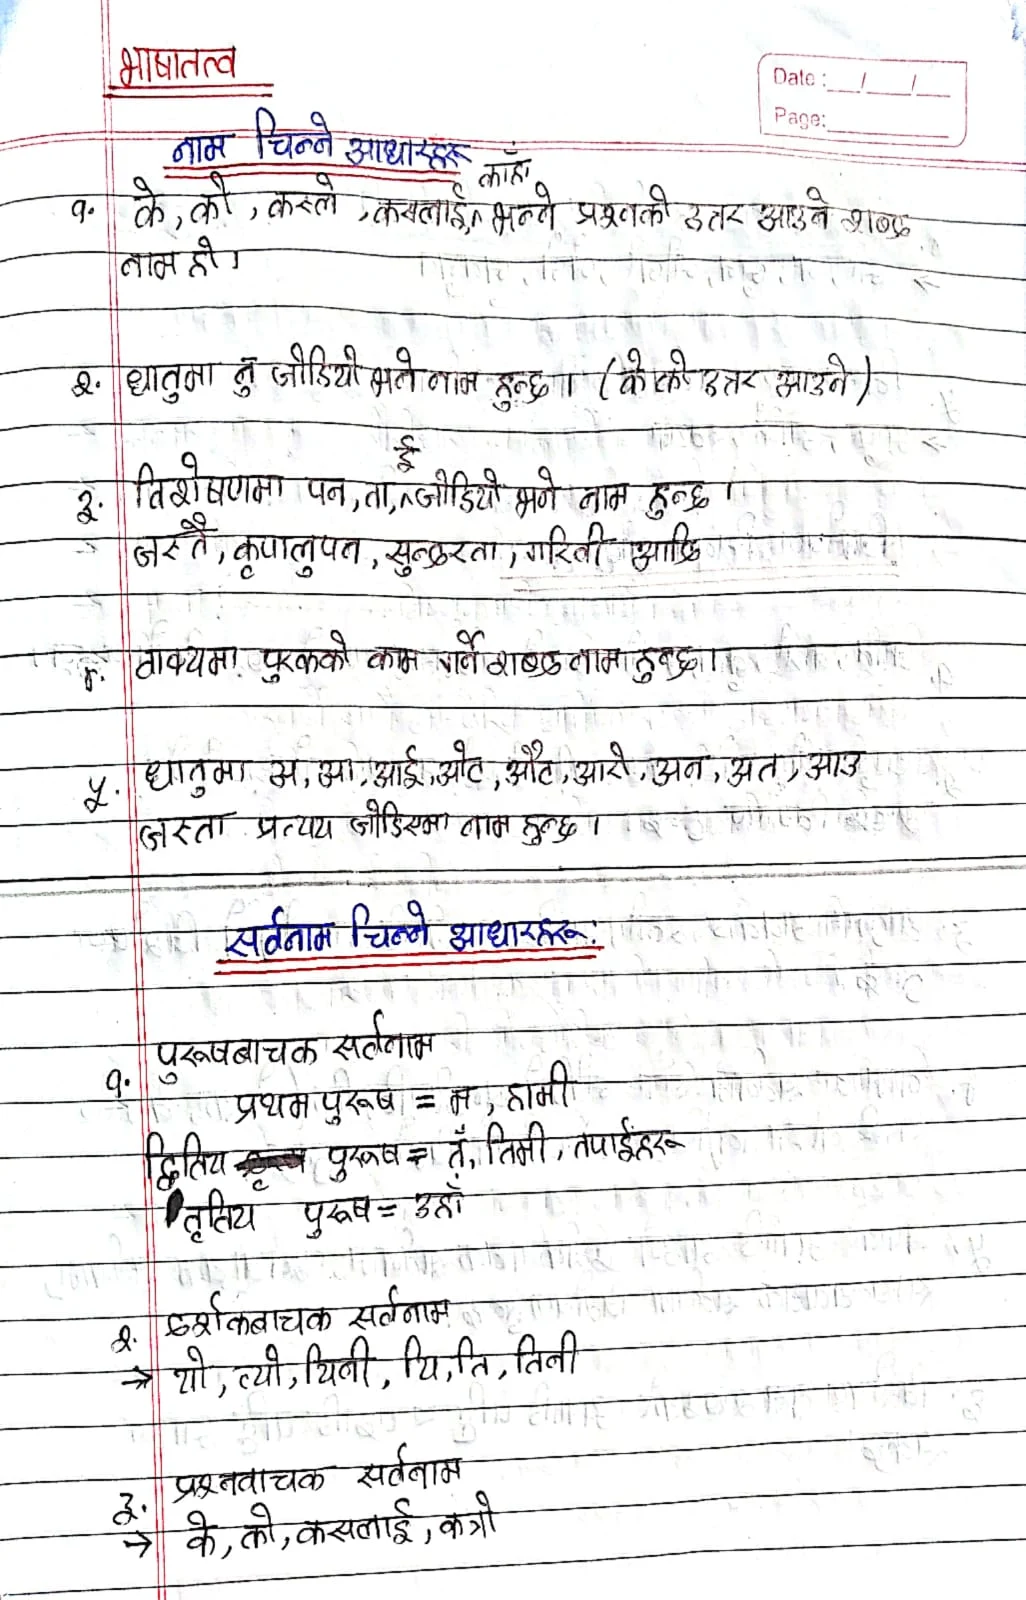 भाषातत्व
Date :__/__/__
Page:
नाम चिन्ने आधारहरू
काहाँ
१. के, को, कस्ले, कसलाई, भन्ने प्रश्नको उत्तर आउने शब्द
नाम हो।
२. धातुमा नु जोडियो भने नाम हुन्छ। (के को उत्तर आउने)
ई
३. विशेषणमा पन, ता, जोडियो भने नाम हुन्छ।
जस्तै, कृपालुपन, सुन्दरता, गरिबी आदि
४. वाक्यमा पुरकको काम गर्ने शब्द नाम हुन्छ।
५. धातुमा अ, आ, आई, ओट, औट, आरो, अन, अत, आउ
जस्ता प्रत्यय जोडिएमा नाम हुन्छ।
सर्वनाम चिन्ने आधारहरू:
१. पुरूषबाचक सर्वनाम
प्रथम पुरूष = म, हामी
द्वितिय पुरूष = तँ, तिमी, तपाईहरू
तृतिय पुरूष = उहाँ
२. दर्शकबाचक सर्वनाम
→ यो, त्यो, यिनी, यि, ति, तिनी
३. प्रश्नवाचक सर्वनाम
→ के, को, कसलाई, कत्रो